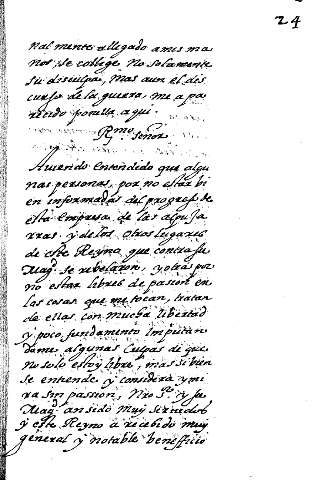 24
nalmente allegado a mis ma
nos, se collige No solamente
su disculpa, mas aun el dis
curso de la guerra, me a pa
recido ponella aqui.
Rmo. señor
Auiendo entendido que algu
nas personas, por no estar bi
en informadas del progreso de
esta Empresa de las alpuja
rras y de los otros lugares
de este Reyno que contra su
Magd. se rebelaron, y otras por
no estar libres de passion en
las cosas que me tocan, tratan
de ellas con mucha libertad
y poco fundamento Imputan
dome algunas Culpas de que
no solo estoy libre, mas si bien
se entiende y considera y mi
ra sin passion, Nro Sr. y su
Magd. an sido muy seruidos
y este Reyno a recebido muy
general y notable beneficio